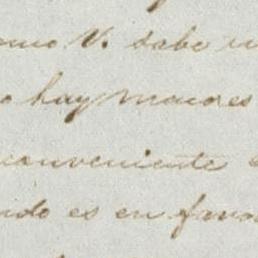 como V. sabe
o hay mayores
inconveniente
ndo es en favor